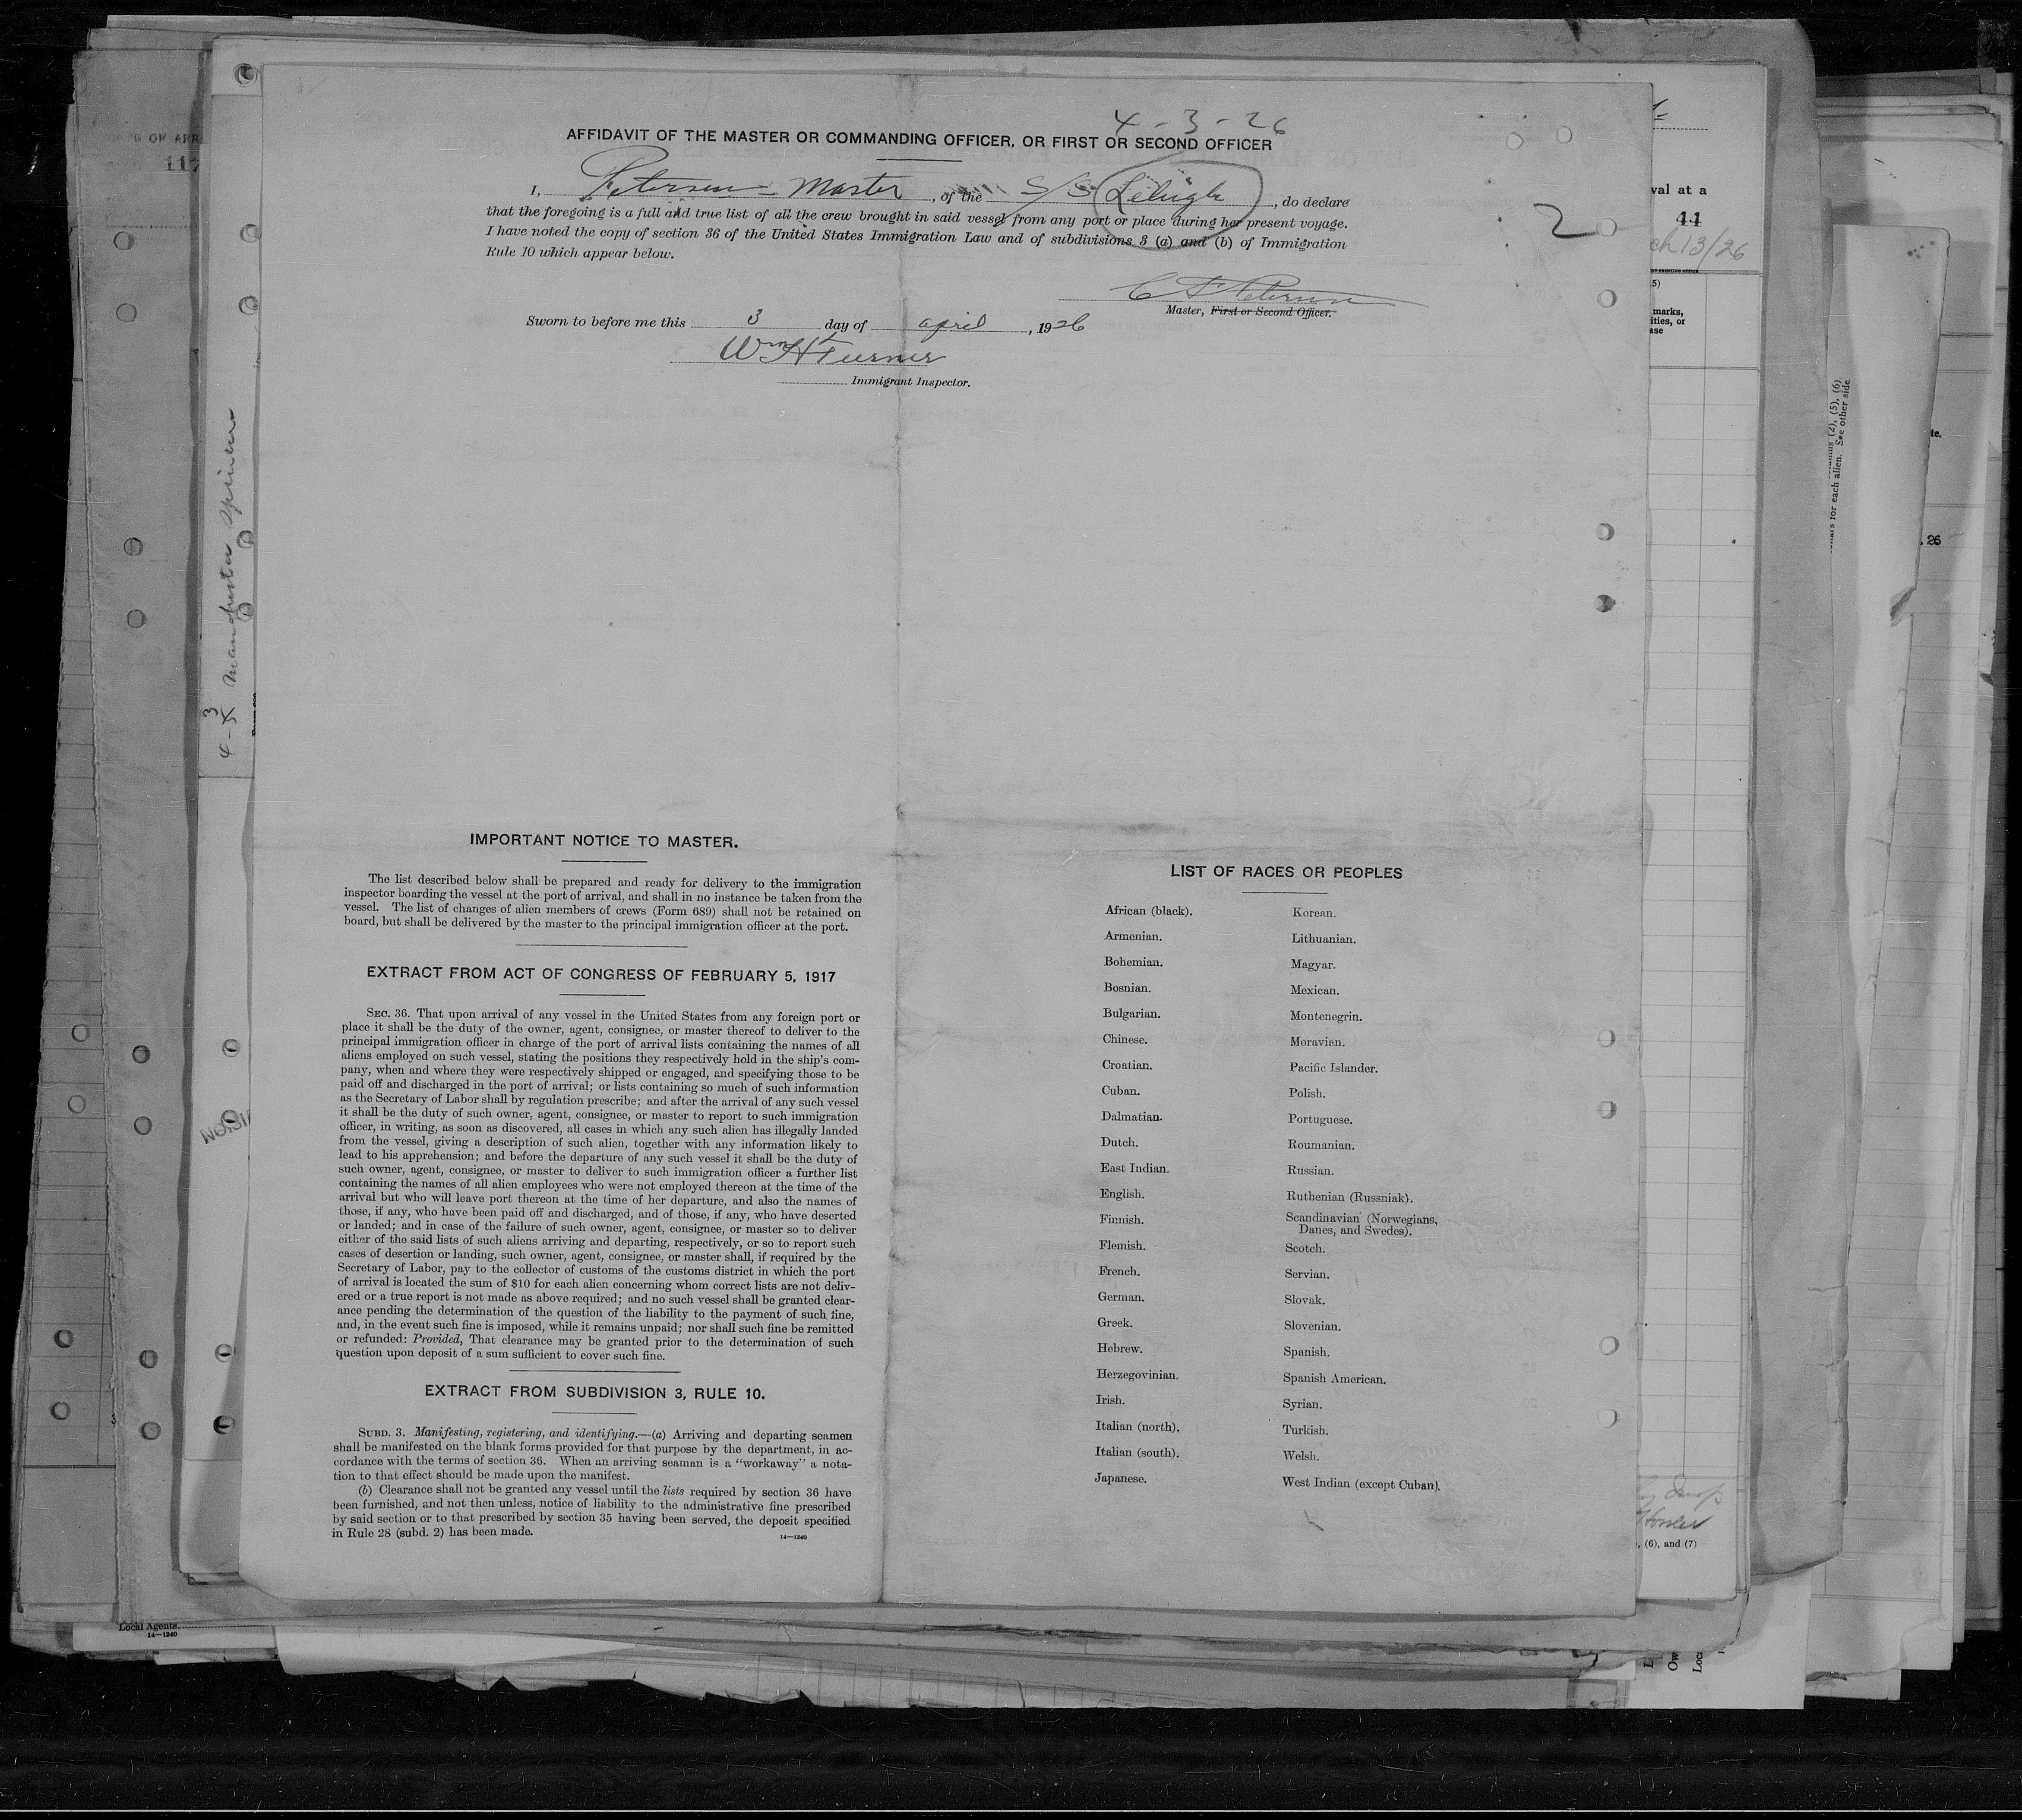 4-3-26
AFFIDAVIT OF THE MASTER OR COMMANDING OFFICER, OR FIRST OR SECOND OFFICER
I, Petersen - Master, of the S/S Lehigh, do declare
that the foregoing is a full and true list of all the crew brought in said vessel from any port or place during her present voyage.
I have noted the copy of section 36 of the United States Immigration Law and of subdivisions 3 (a) and (b) of Immigration
Rule 10 which appear below.
2
C F Petersen
Master, First or Second Officer.
Sworn to before me this 3 day of april, 1926
Wm H Turner
Immigrant Inspector.
IMPORTANT NOTICE TO MASTER.
The list described below shall be prepared and ready for delivery to the immigration
inspector boarding the vessel at the port of arrival, and shall in no instance be taken from the
vessel. The list of changes of alien members of crews (Form 689) shall not be retained on
board, but shall be delivered by the master to the principal immigration officer at the port.
EXTRACT FROM ACT OF CONGRESS OF FEBRUARY 5, 1917
SEC. 36. That upon arrival of any vessel in the United States from any foreign port or
place it shall be the duty of the owner, agent, consignee, or master thereof to deliver to the
principal immigration officer in charge of the port of arrival lists containing the names of all
aliens employed on such vessel, stating the positions they respectively hold in the ship's com-
pany, when and where they were respectively shipped or engaged, and specifying those to be
paid off and discharged in the port of arrival; or lists containing so much of such information
as the Secretary of Labor shall by regulation prescribe; and after the arrival of any such vessel
it shall be the duty of such owner, agent, consignee, or master to report to such immigration
officer, in writing, as soon as discovered, all cases in which any such alien has illegally landed
from the vessel, giving a description of such alien, together with any information likely to
lead to his apprehension; and before the departure of any such vessel it shall be the duty of
such owner, agent, consignee, or master to deliver to such immigration officer a further list
containing the names of all alien employees who were not employed thereon at the time of the
arrival but who will leave port thereon at the time of her departure, and also the names of
those, if any, who have been paid off and discharged, and of those, if any, who have deserted
or landed; and in case of the failure of such owner, agent, consignee, or master so to deliver
either of the said lists of such aliens arriving and departing, respectively, or so to report such
cases of desertion or landing, such owner, agent, consignee, or master shall, if required by the
Secretary of Labor, pay to the collector of customs of the customs district in which the port
of arrival is located the sum of $10 for each alien concerning whom correct lists are not deliv-
ered or a true report is not made as above required; and no such vessel shall be granted clear-
ance pending the determination of the question of the liability to the payment of such fine,
and, in the event such fine is imposed, while it remains unpaid; nor shall such fine be remitted
or refunded: Provided, That clearance may be granted prior to the determination of such
question upon deposit of a sum sufficient to cover such fine.
EXTRACT FROM SUBDIVISION 3, RULE 10.
SUBD. 3. Manifesting, registering, and identifying.—(a) Arriving and departing seamen
shall be manifested on the blank forms provided for that purpose by the department, in ac-
cordance with the terms of section 36. When an arriving seaman is a "workaway" a nota-
tion to that effect should be made upon the manifest.
(b) Clearance shall not be granted any vessel until the lists required by section 36 have
been furnished, and not then unless, notice of liability to the administrative fine prescribed
by said section or to that prescribed by section 35 having been served, the deposit specified
in Rule 28 (subd. 2) has been made.
14—1240
LIST OF RACES OR PEOPLES
African (black).
Armenian.
Bohemian.
Bosnian.
Bulgarian.
Chinese.
Croatian.
Cuban.
Dalmatian.
Dutch.
East Indian.
English.
Finnish.
Flemish.
French.
German.
Greek.
Hebrew.
Herzegovinian.
Irish.
Italian (north).
Italian (south).
Japanese.
Korean.
Lithuanian.
Magyar.
Mexican.
Montenegrin.
Moravian.
Pacific Islander.
Polish.
Portuguese.
Roumanian.
Russian.
Ruthenian (Russniak).
Scandinavian (Norwegians,
Danes, and Swedes).
Scotch.
Servian.
Slovak.
Slovenian.
Spanish.
Spanish American.
Syrian.
Turkish.
Welsh.
West Indian (except Cuban).
117
4-3 Manchester
val at a
44
13/26
marks,
ities, or
ase
for each alien. See other side
te.
26
, (6), and (7)
Local Agents
14—1240